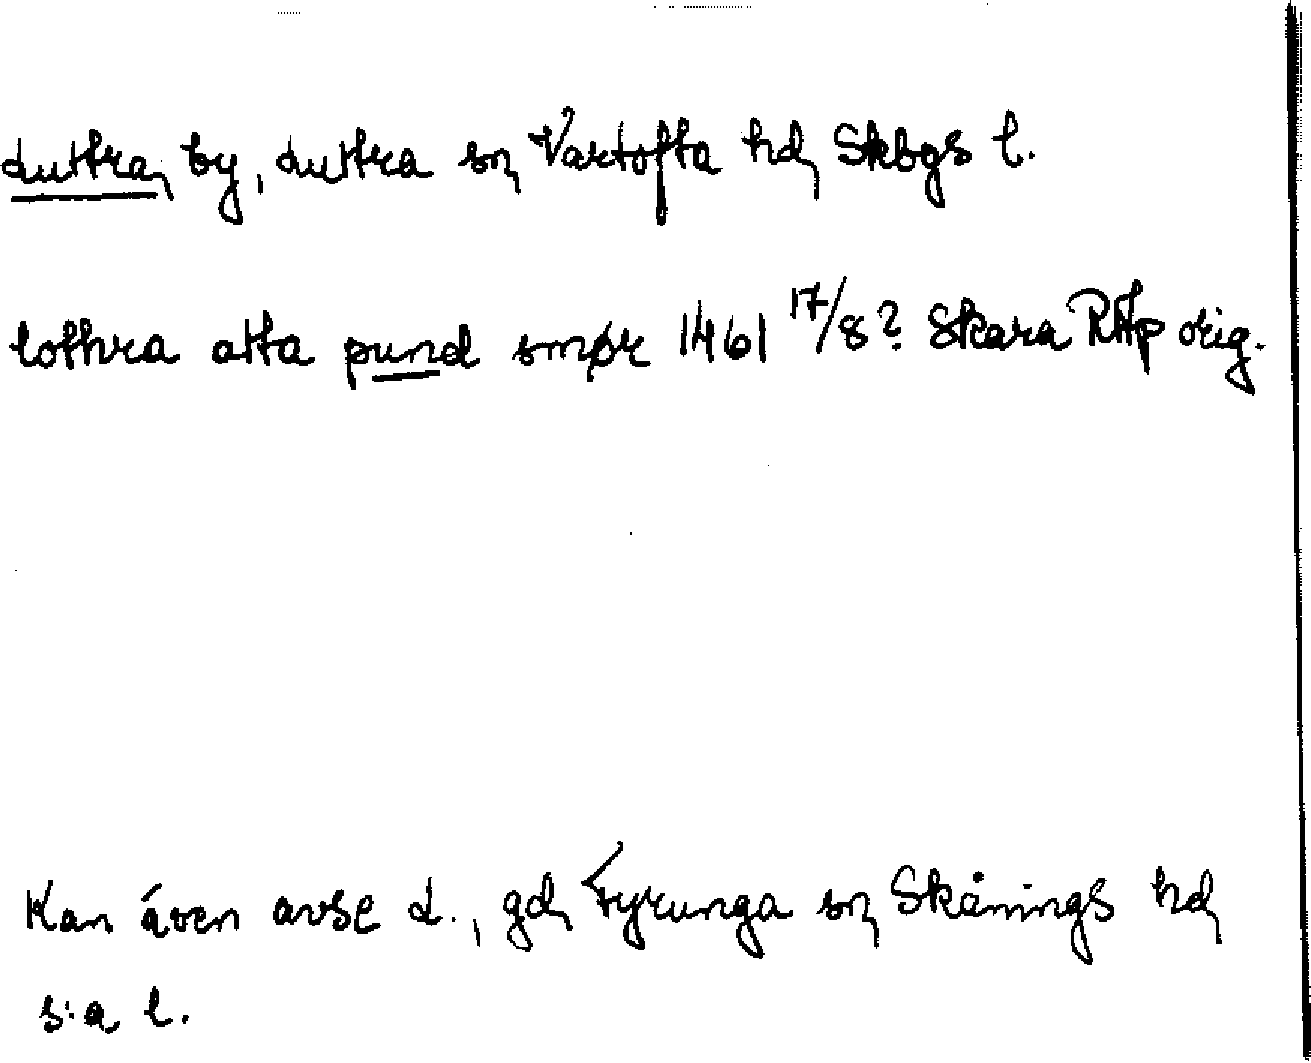 Luttra, by, Luttra sn, Vartofta hd, Skbgs l.
lothra atta pund smør 1461 17/8? Skara RAp orig.
Kan även avse L., gd, Fyrunga sn, Skånings hd,
s:a l.